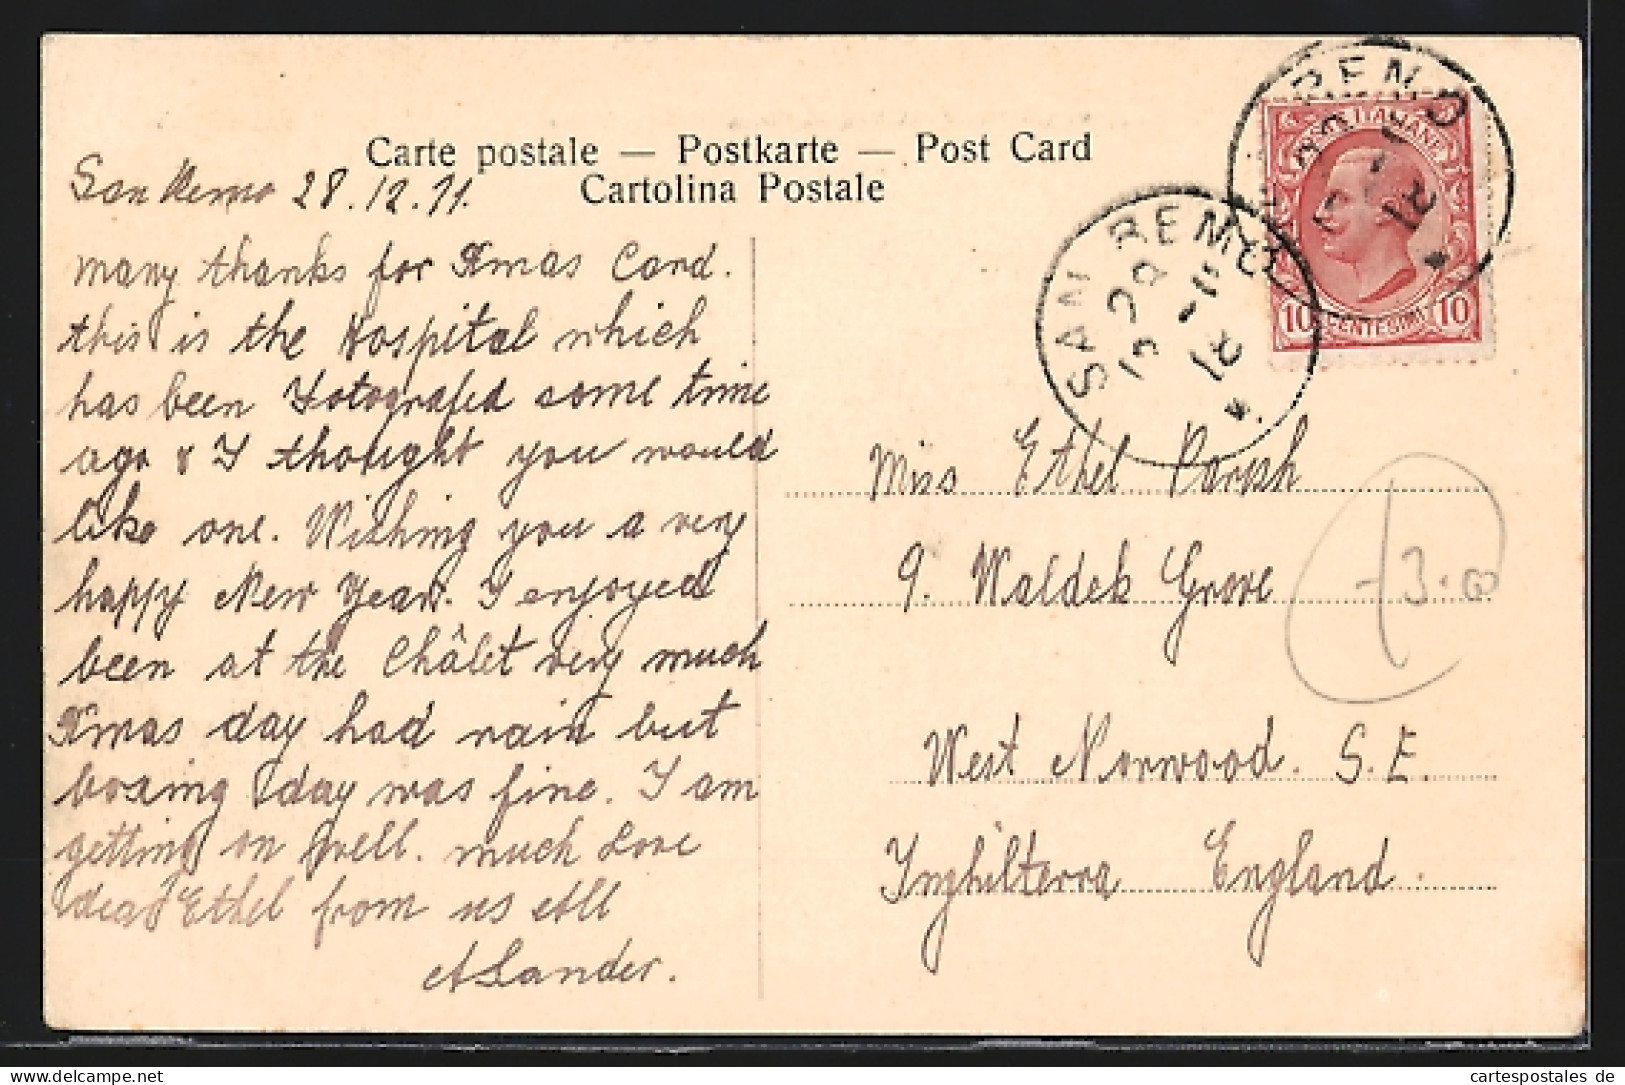 Carte postale — Postkarte — Post Card
Cartolina Postale
San Remo 28.12.11.
many thanks for Xmas Card.
this is the Hospital which
has been Fotografed some time
ago & I thought you would
like one. Wishing you a very
happy New Year. I enjoyed
been at the Châlet very much
Xmas day had rain but
boxing day was fine. I am
getting on well. much Love
dear Ethel from us All
A Lander.
SAN REMO
29
12
11
18
SAN REMO
POSTE ITALIANE
10 CENTESIMI 10
Miss Ethel Parish
9. Waldek Grove
West Norwood. S.E.
Inghilterra England.
cartespostales de